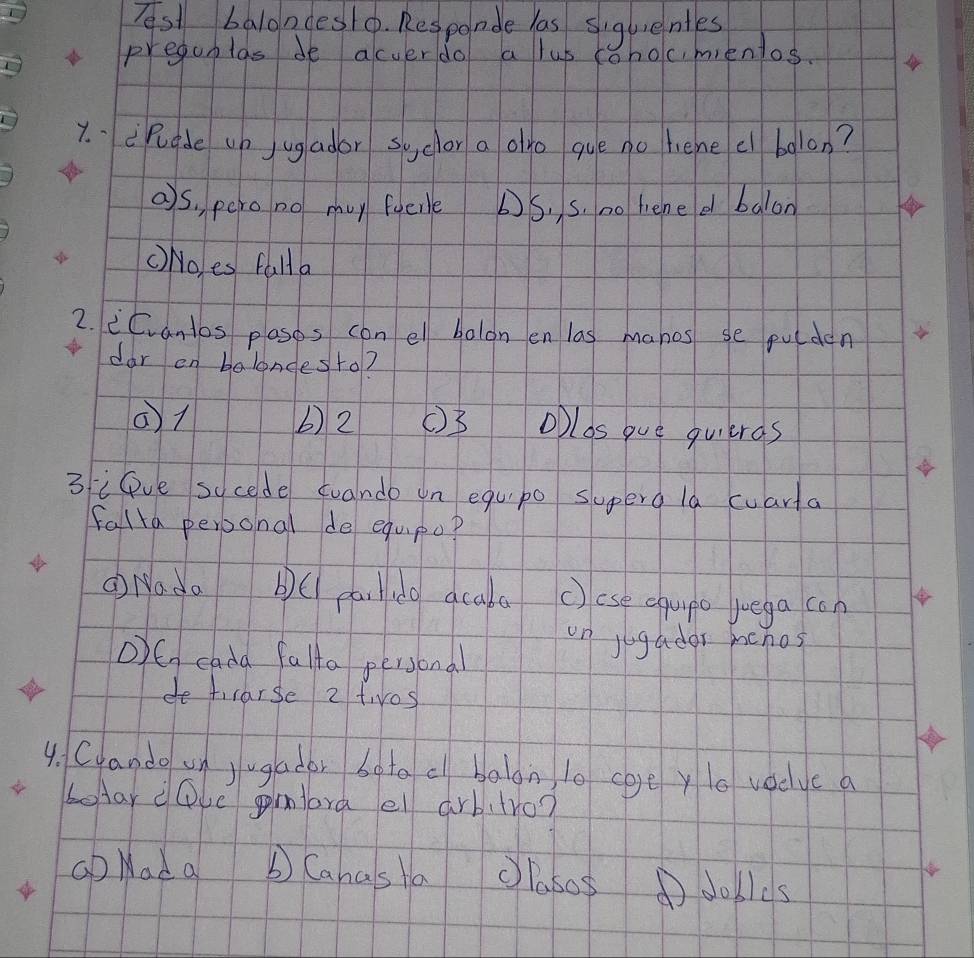 Test baloncesto. Responde las siguientes
preguntas de acuerdo a tus conocimientos.
1.- ¿Puede un jugador sujetar a otro que no tiene el balon?
a) Si, pero no muy fuerte b) Si, si no tiene el balon
c) No, es falta
2. ¿Cuantos pasos con el balon en las manos se pueden
dar en baloncesto?
a) 1 b) 2 c) 3 D) los que quieras
3.- ¿Que sucede cuando un equipo supera la cuarta
falta personal de equipo?
a) Nada b) El partido acaba c) ese equipo juega con
un jugador menos
D) En cada falta personal
de tirarse 2 tiros
4. Cuando un jugador bota el balon, lo coge y lo vuelve a
botar ¿Que pintara el arbitro?
a) Nada b) Canasta c) Pasos d) dobles